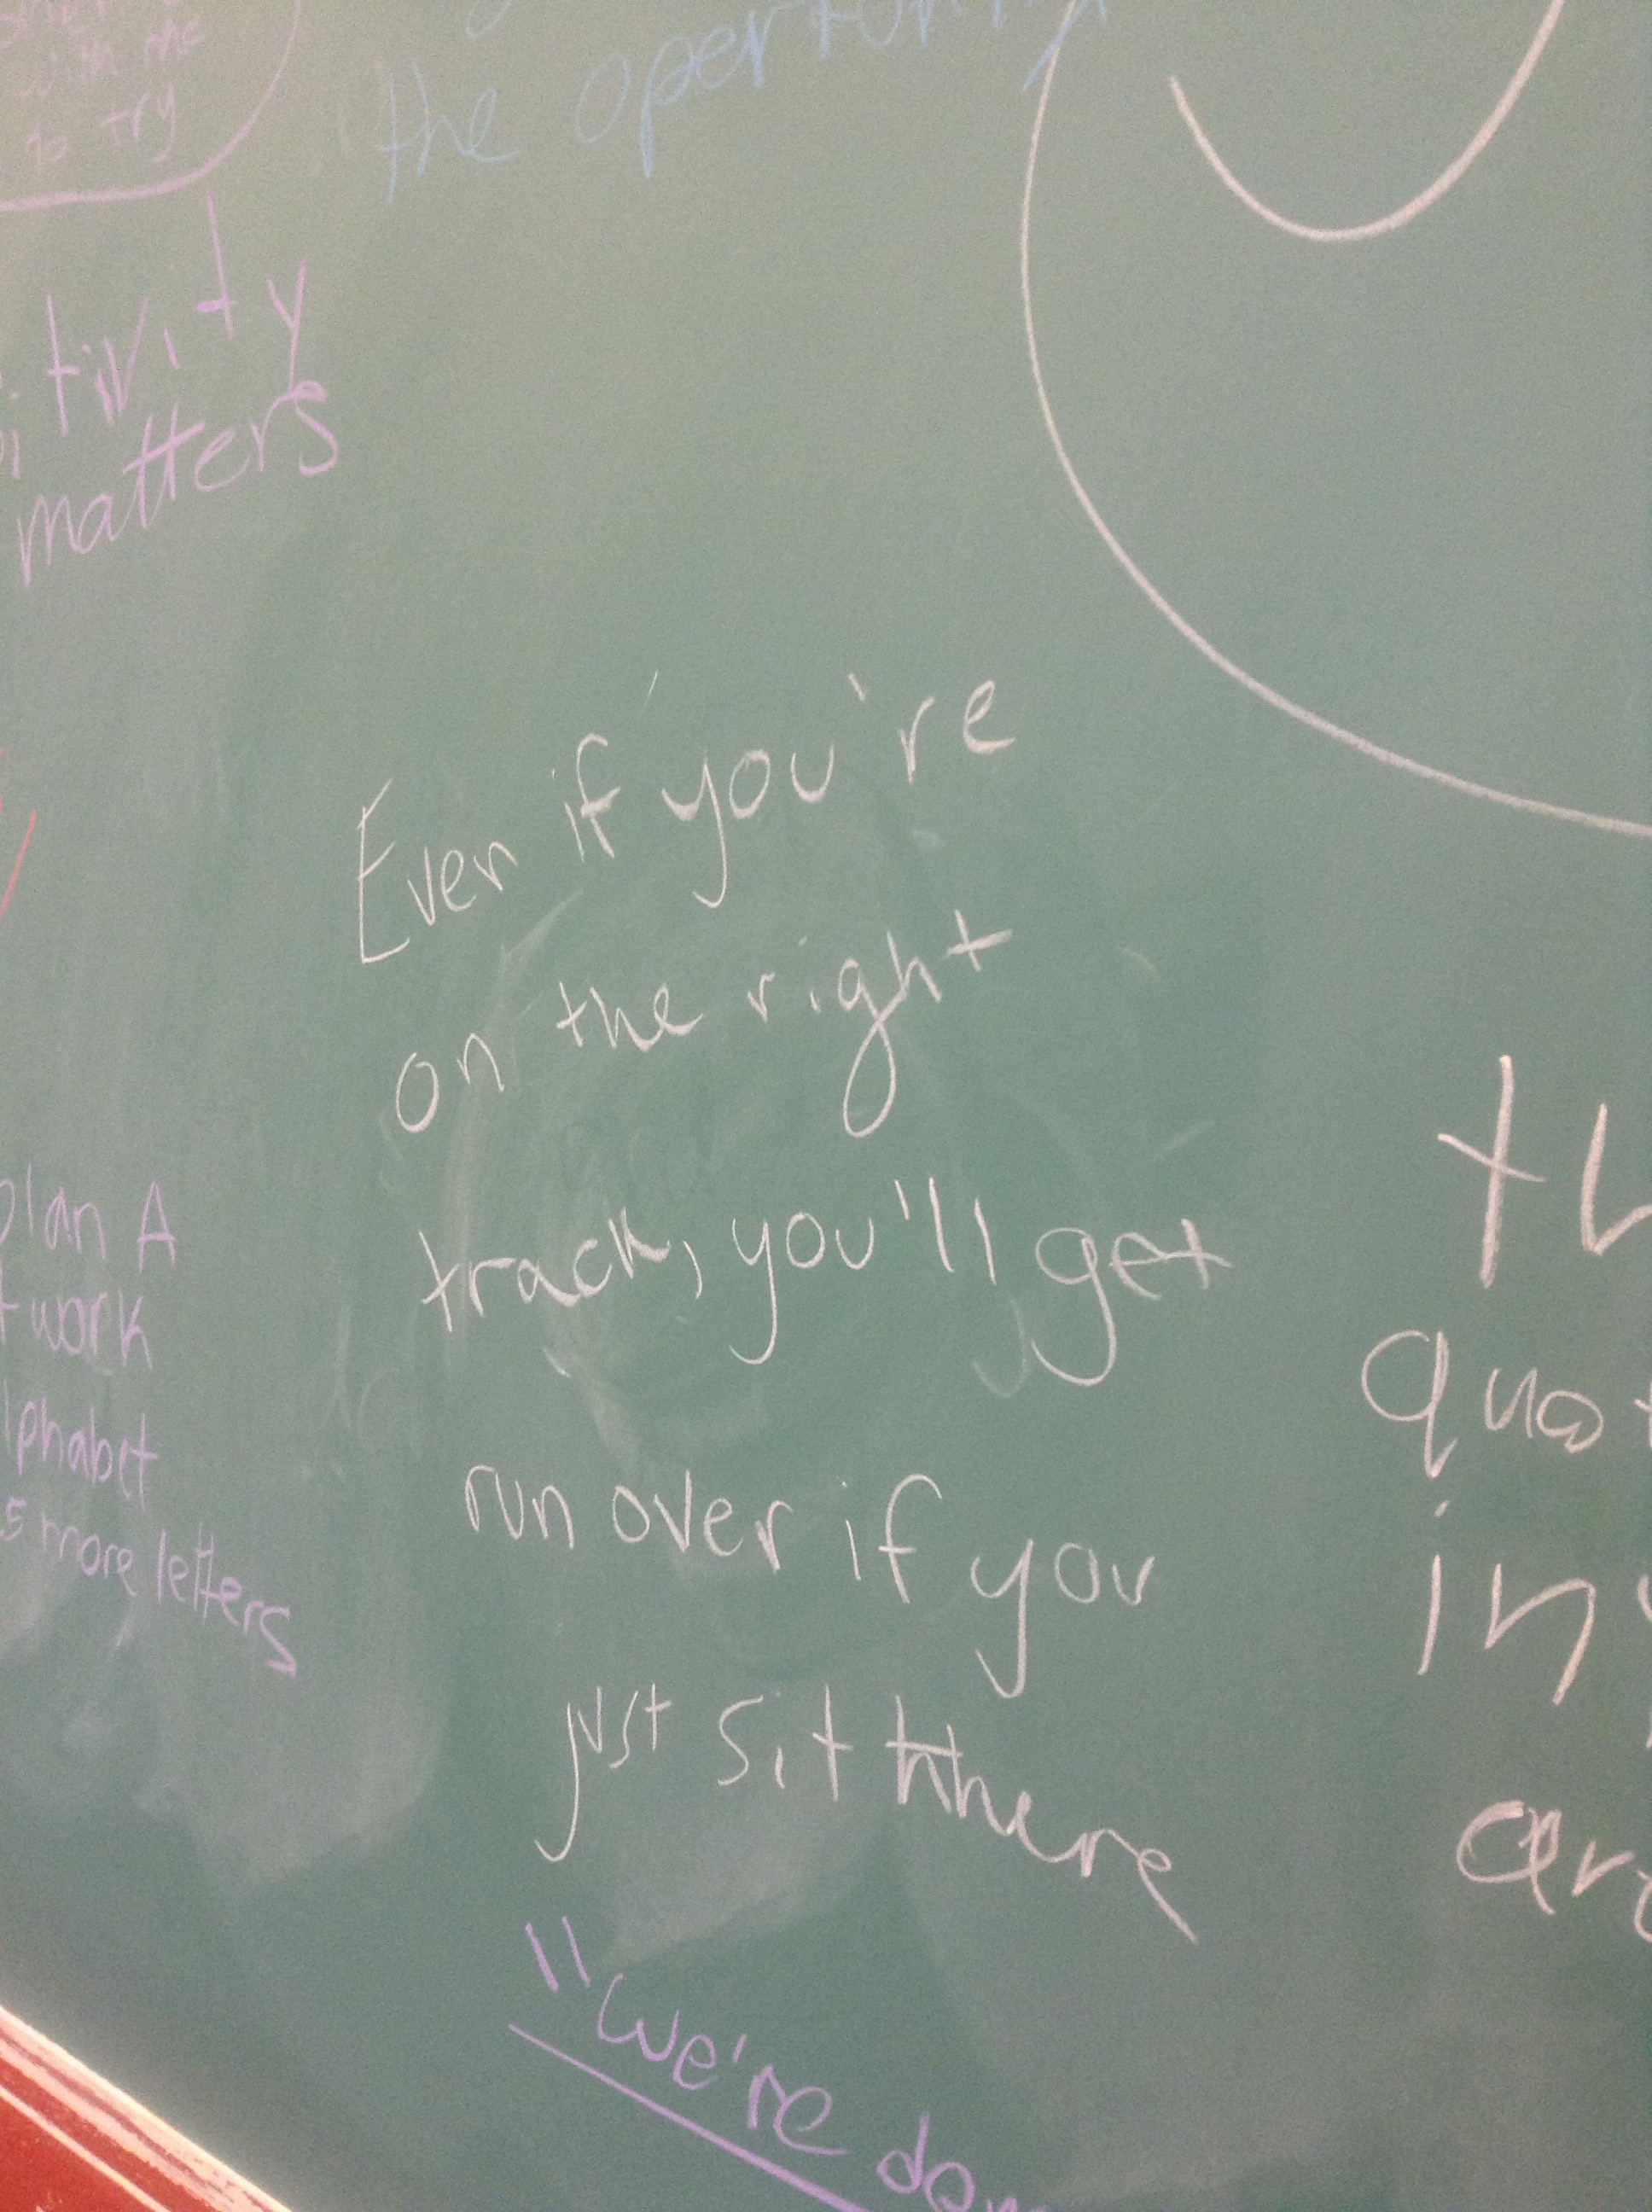 with me
to try
the oportunity
tivity
matters
Even if you're
on the right
track, you'll get
run over if you
just sit there
plan A
work
alphabet
5 more letters
"We're